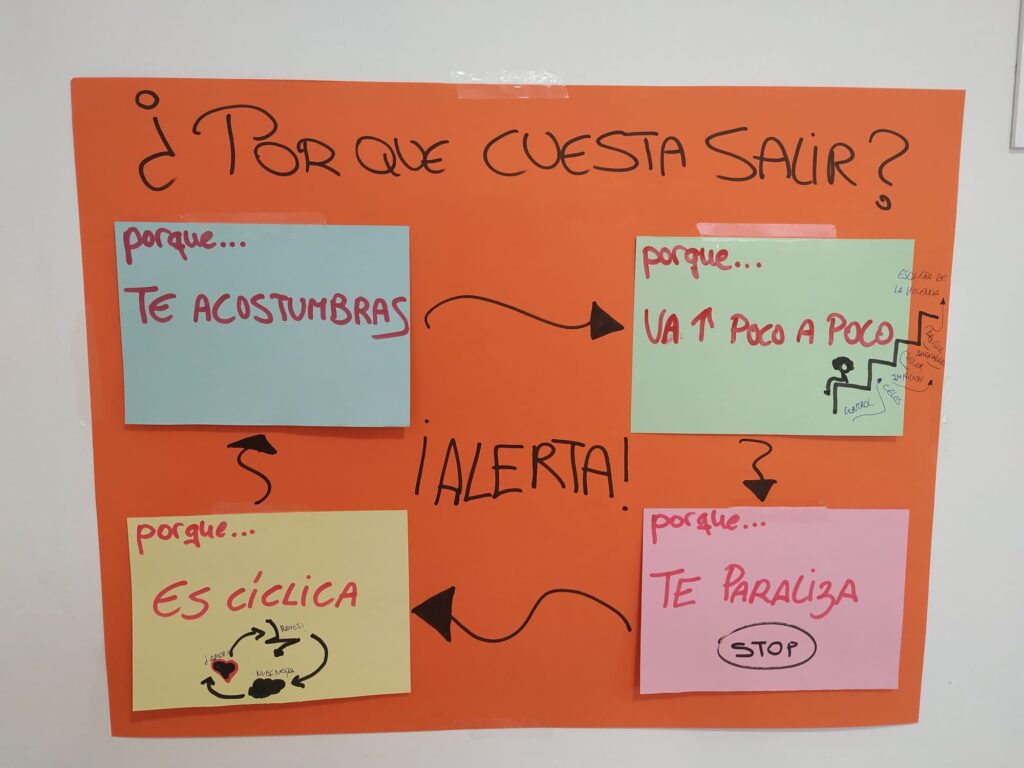 ¿POR QUE CUESTA SALIR?
porque...
TE ACOSTUMBRAS
porque...
VA ↑ POCO A POCO
LA VIOLENCIA
CELOS
CONTROL
¡ALERTA!
porque...
ES CÍCLICA
RAYOS!
NUBE NEGRA
porque...
TE PARALIZA
STOP